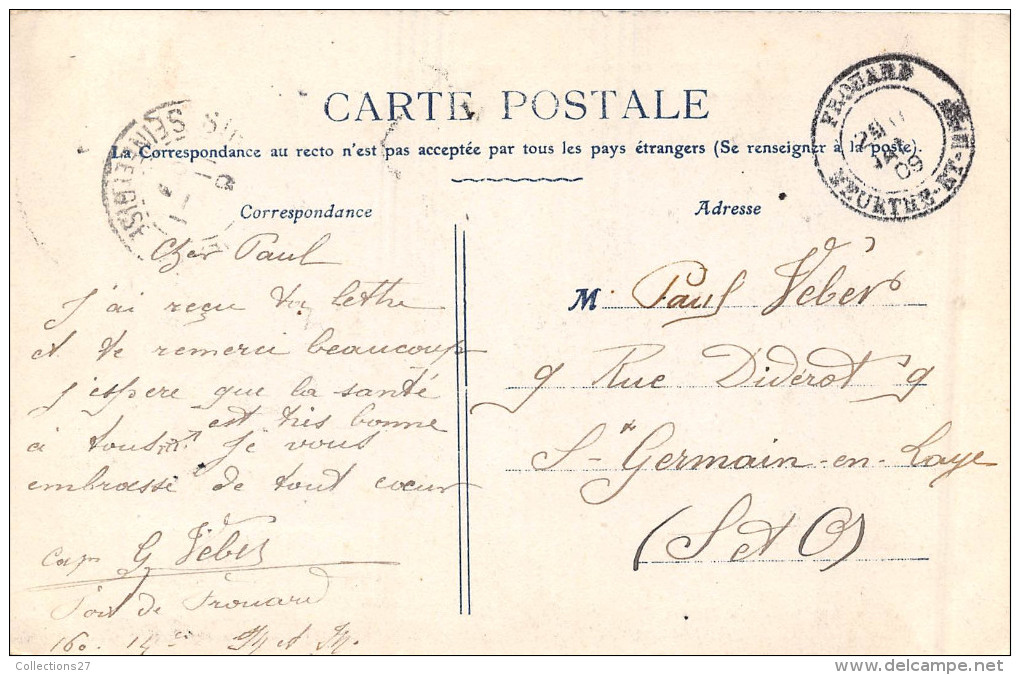 CARTE POSTALE
La Correspondance au recto n'est pas acceptée par tous les pays étrangers (Se renseigner à la poste).
Correspondance
Cher Paul
J'ai reçu ta lettre
et te remerci beaucoup
J'espere que la santé
est très bonne
à tous Je vous
embrasse de tout coeur
Cap G Véber
Fort de Frouard
160. 14
Adresse
M. Paul Véber
9 Rue Diderot 9
St Germain-en-Laye
(S et O)
FROUARD
09
MEURTHE-ET-M
SEINE-ET-OISE
Collections27
delcampe.net